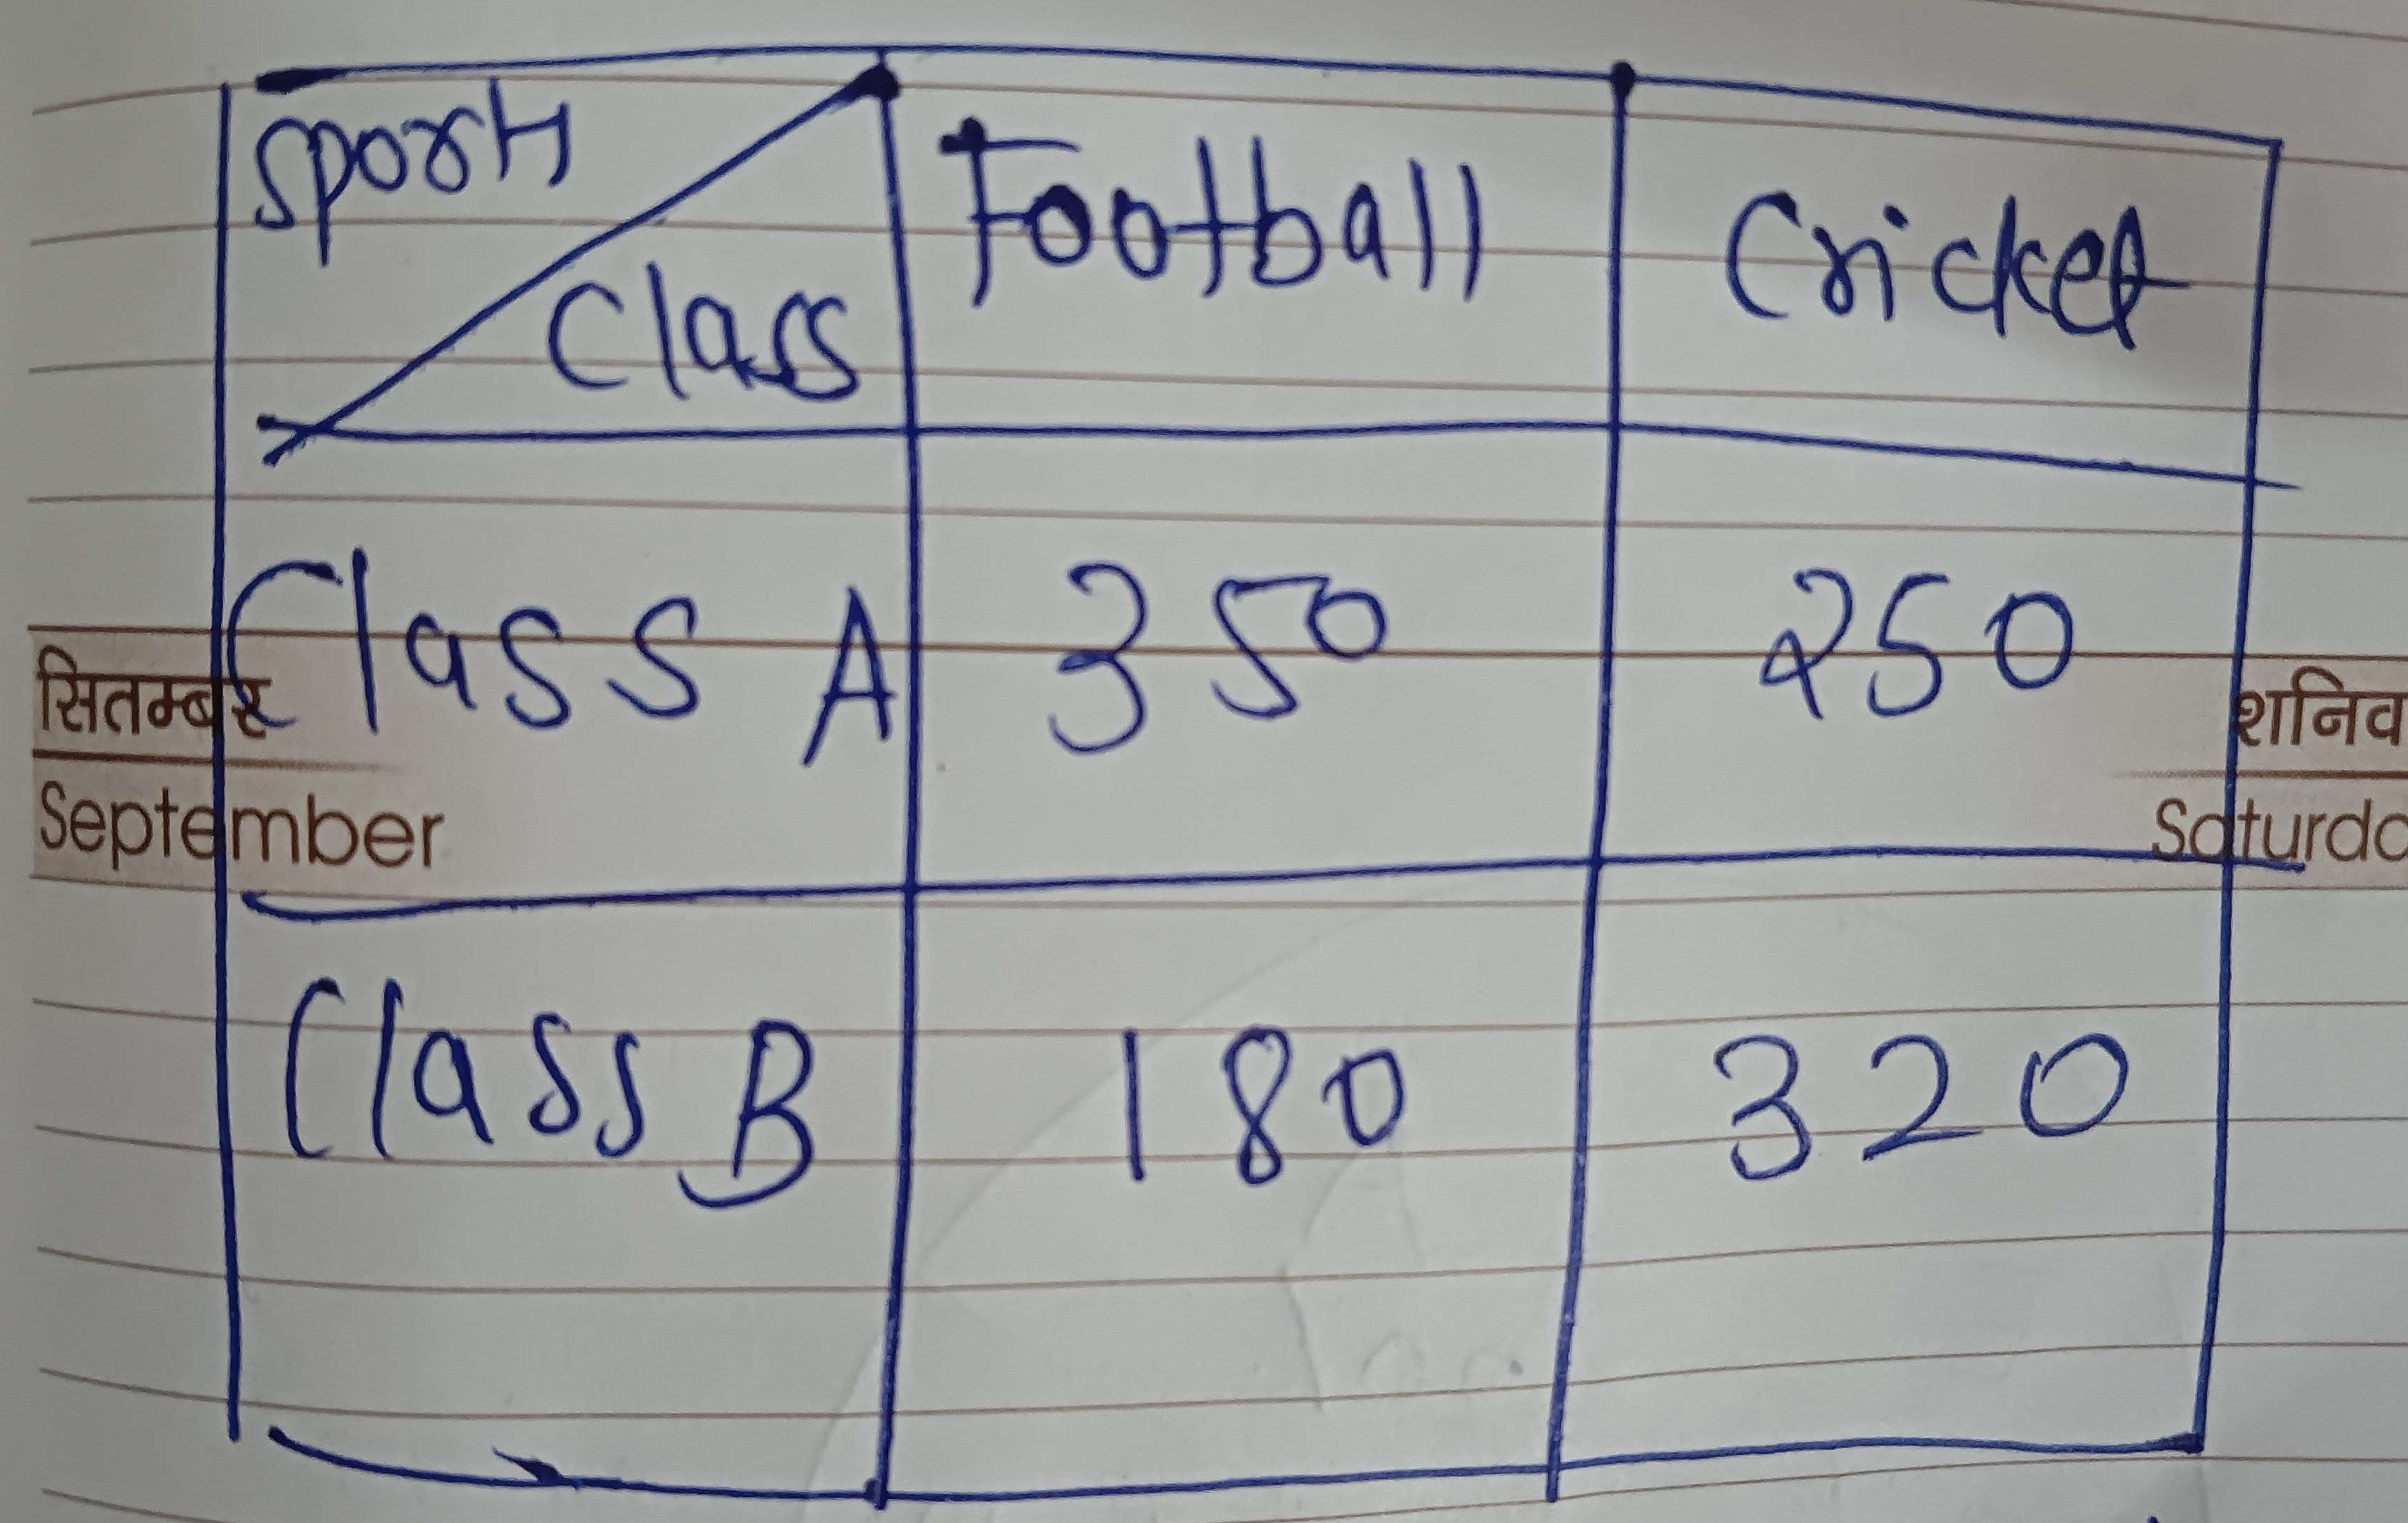 Sports Football Cricket
Class
Class A 350 250
सितम्बर शनिव
September Saturda
Class B 180 320